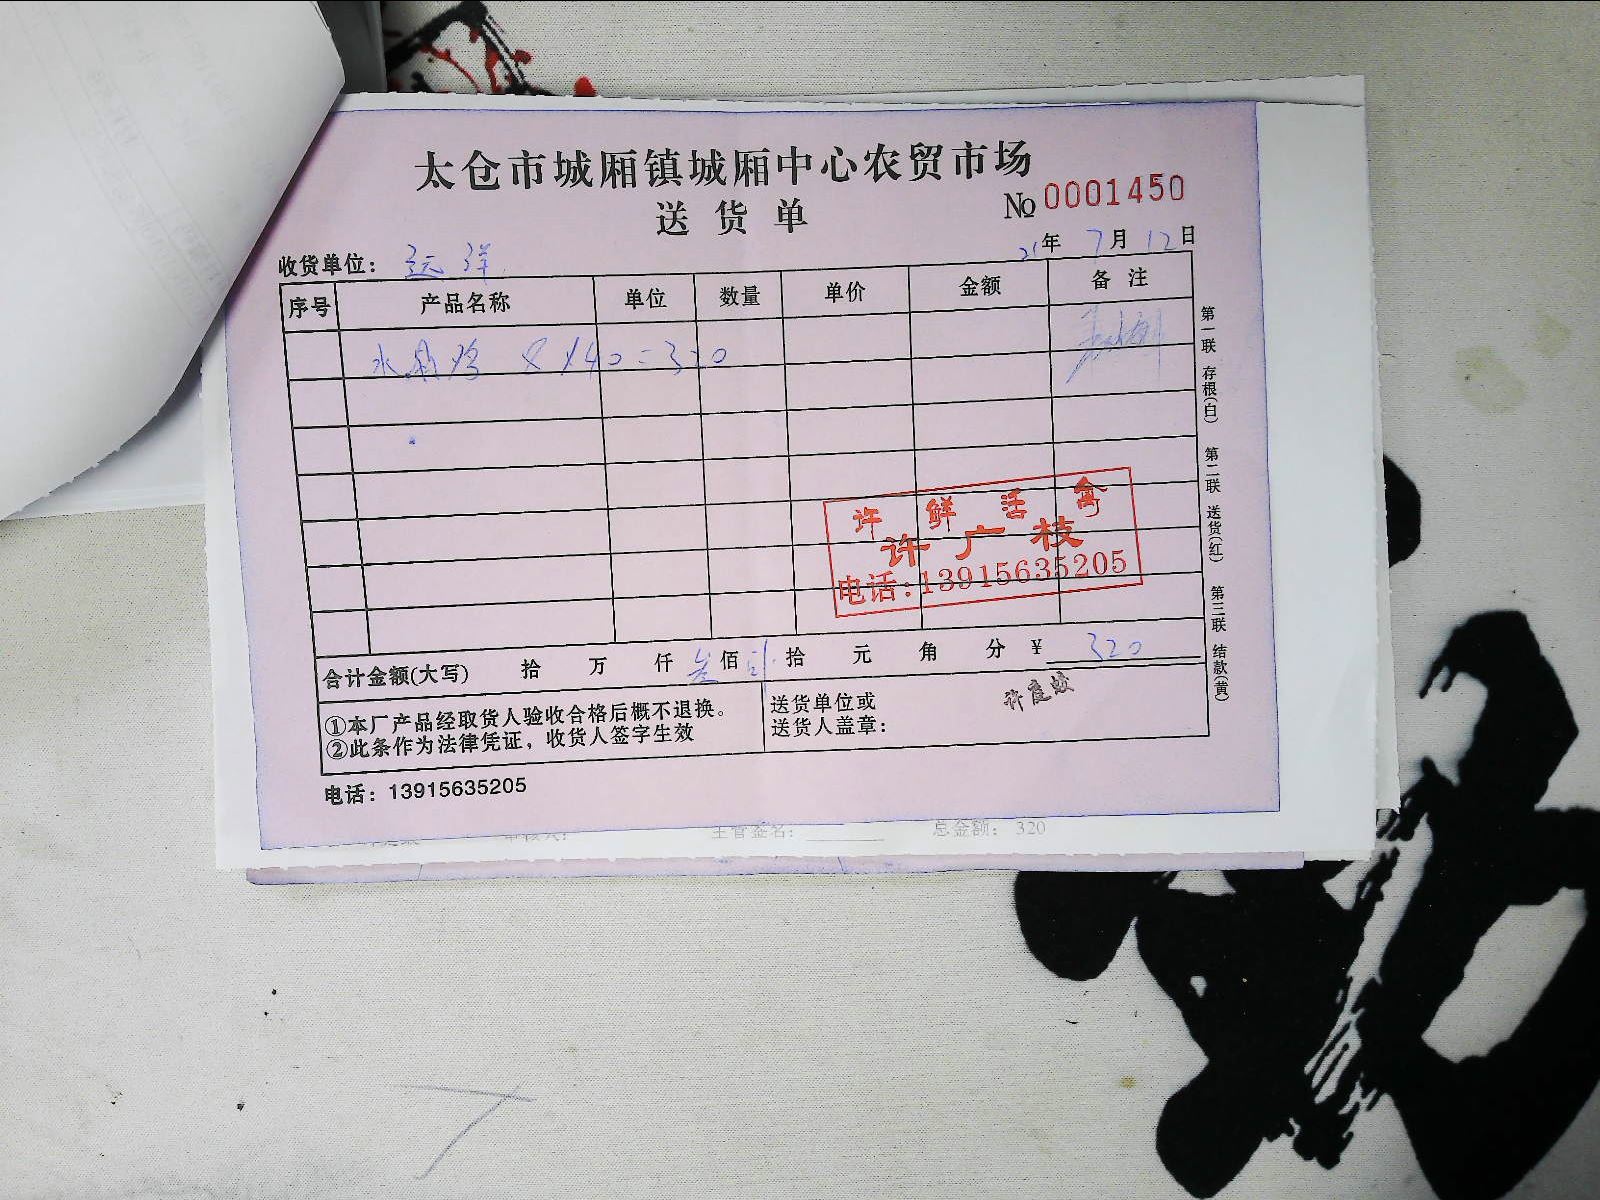 太仓市城厢镇城厢中心农贸市场
送货单
№ 0001450
21年 7月 12日
收货单位： 远洋
序号 产品名称 单位 数量 单价 金额 备注
8×40=320
第一联 存根(白) 第二联 送货(红) 第三联 结款(黄)
许鲜活禽
许广枝
电话:13915635205
合计金额(大写) 拾 万 仟 叁佰 贰拾 元 角 分 ¥ 320
①本厂产品经取货人验收合格后概不退换。
②此条作为法律凭证，收货人签字生效
送货单位或
送货人盖章：
电话：13915635205
主管签名： 总金额： 320